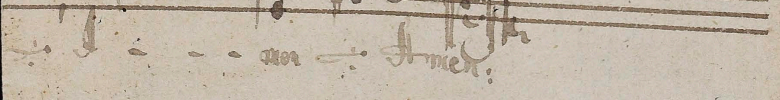 ÷ A - - - men ÷ Amen: